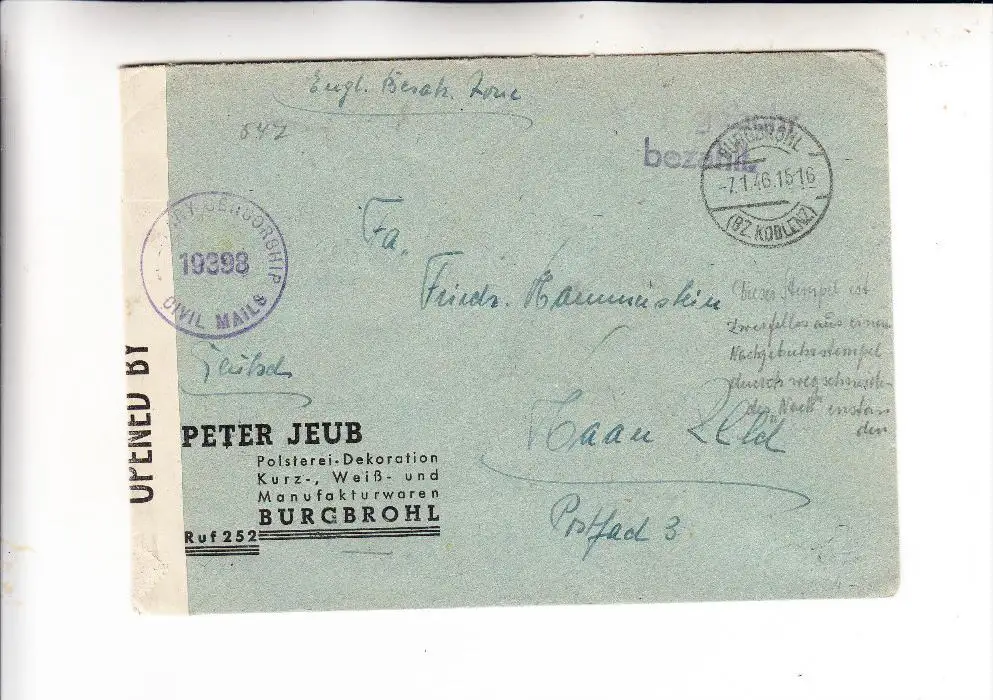 Engl. Besatz. Zone
547
bezahlt
BURGBROHL
-7.1.46.15-16
(BZ. KOBLENZ)
CENSORSHIP
19398
CIVIL MAILS
OPENED BY
Fa.
Friedr. Hammerstein
Dieser Stempel ist
zweifellos aus einem
Nachgebührstempel
durch wegschneiden
des "Nach" entstan
den
Deutsch
Haan Rhld
Postfach 3
PETER JEUB
Polsterei-Dekoration
Kurz-, Weiß- und
Manufakturwaren
BURGBROHL
Ruf 252